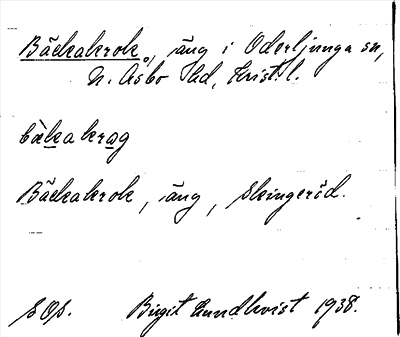 Bäckakrok, äng i Oderljunga sn,
N. Åsbo hd, Krist. l.
bækakrag
Bäckakrok, äng, Skingeröd.
Birgit Lundkvist 1938.